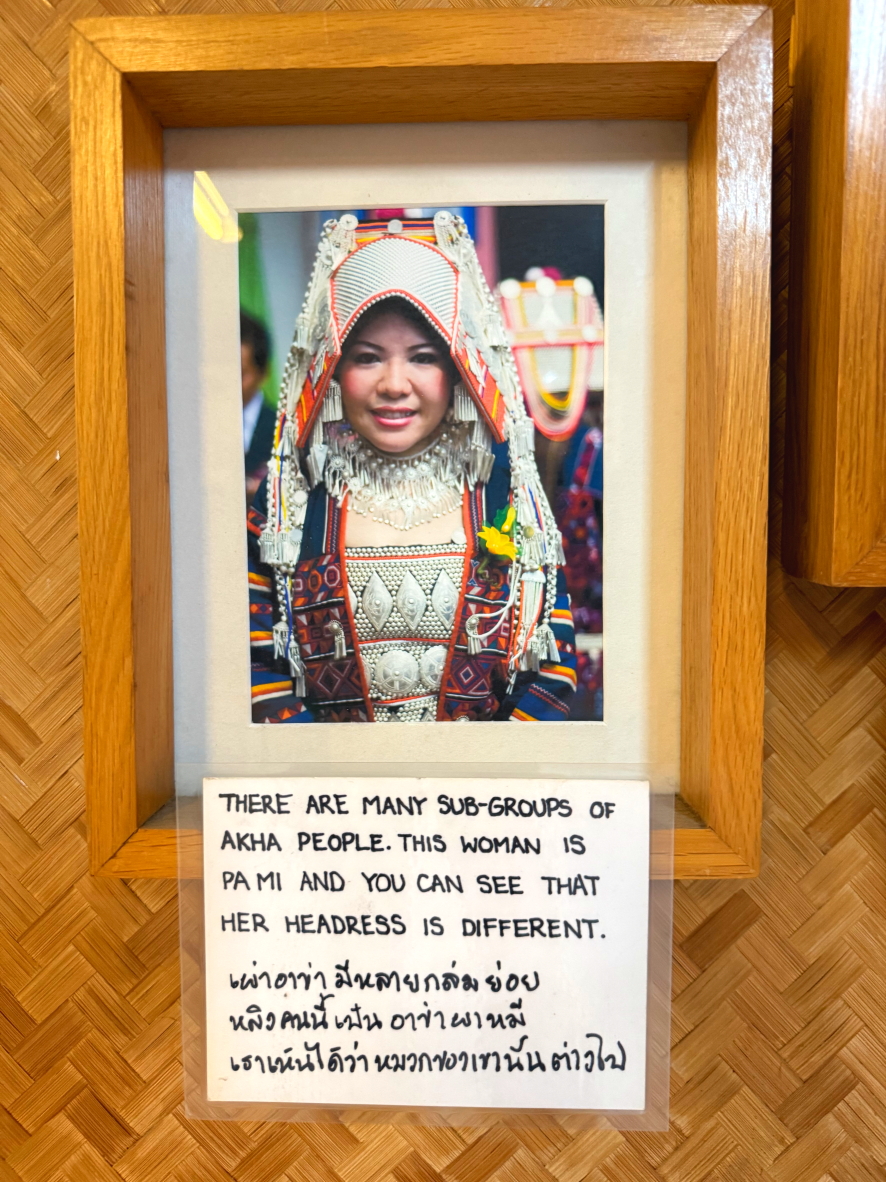 THERE ARE MANY SUB-GROUPS OF
AKHA PEOPLE. THIS WOMAN IS
PA MI AND YOU CAN SEE THAT
HER HEADRESS IS DIFFERENT.
เผ่าอาข่า มีหลายกล่ม ย่อย
หลิงคนนี้ เป็น อาข่า ผาหมี
เราเห็นได้ว่า หมวกของเขานั้น ต่างไป